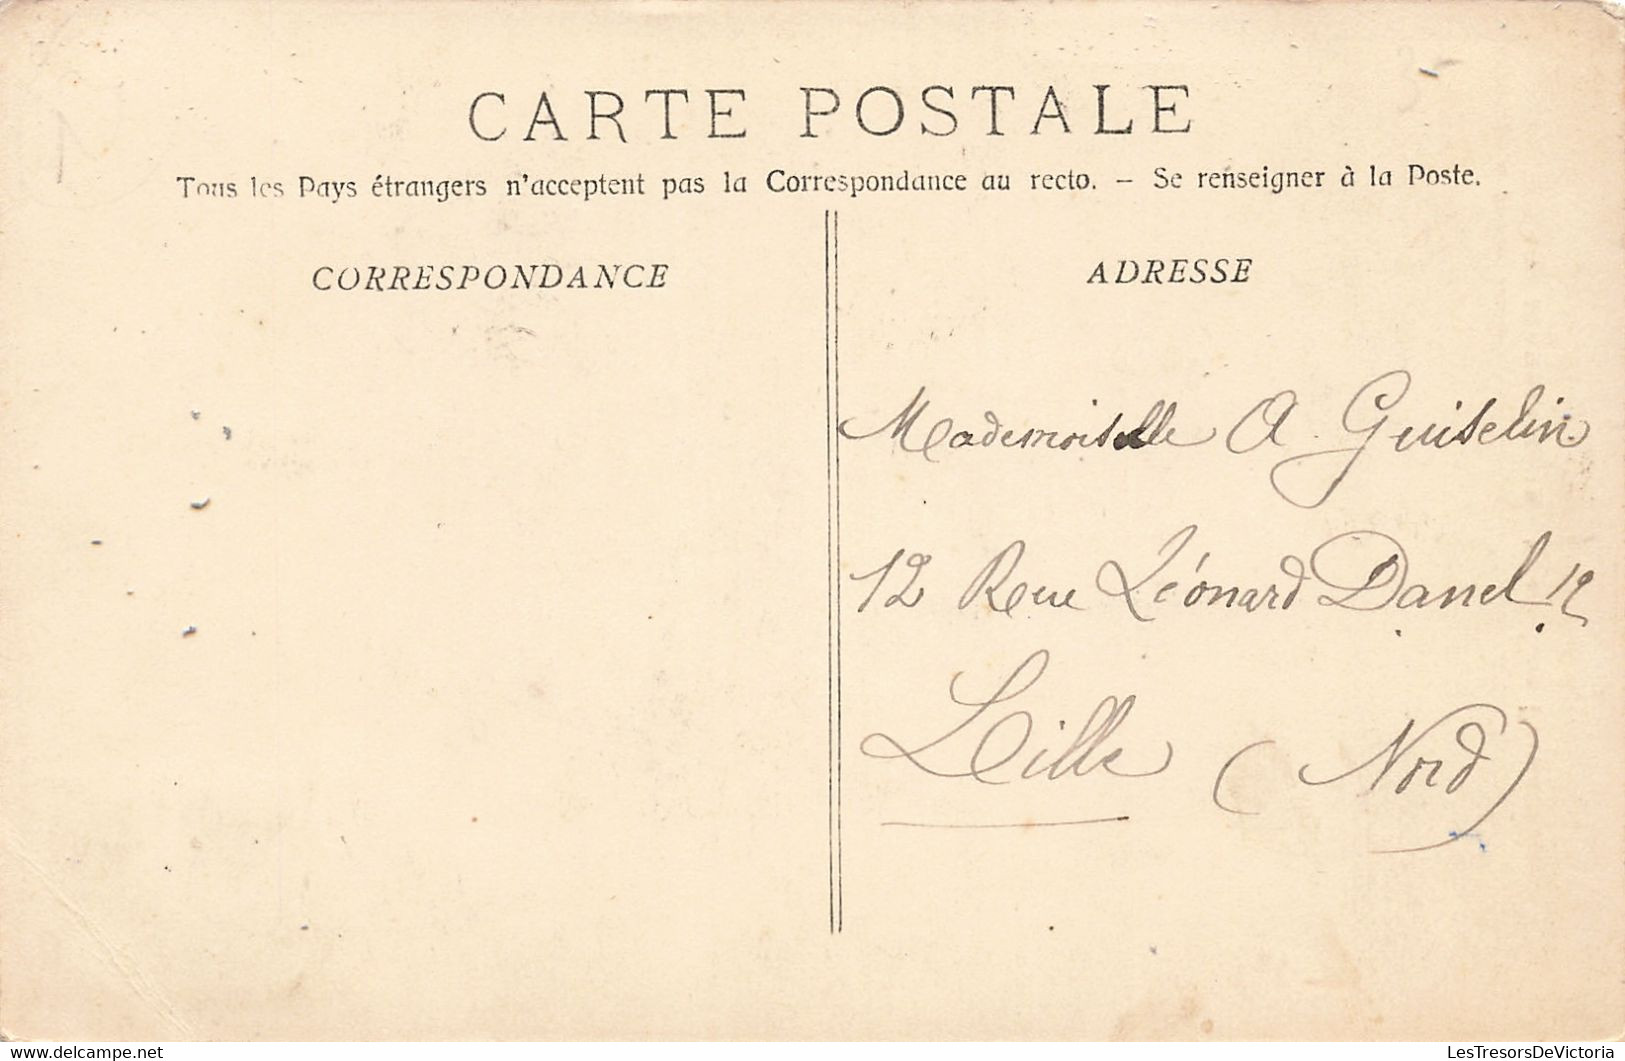 CARTE POSTALE
Tous les Pays étrangers n'acceptent pas la Correspondance au recto. – Se renseigner à la Poste.
CORRESPONDANCE
ADRESSE
Mademoiselle A. Guiselin
12 Rue Léonard Danel 12
Lille (Nord)
https://www.delcampe.net
LesTresorsDeVictoria